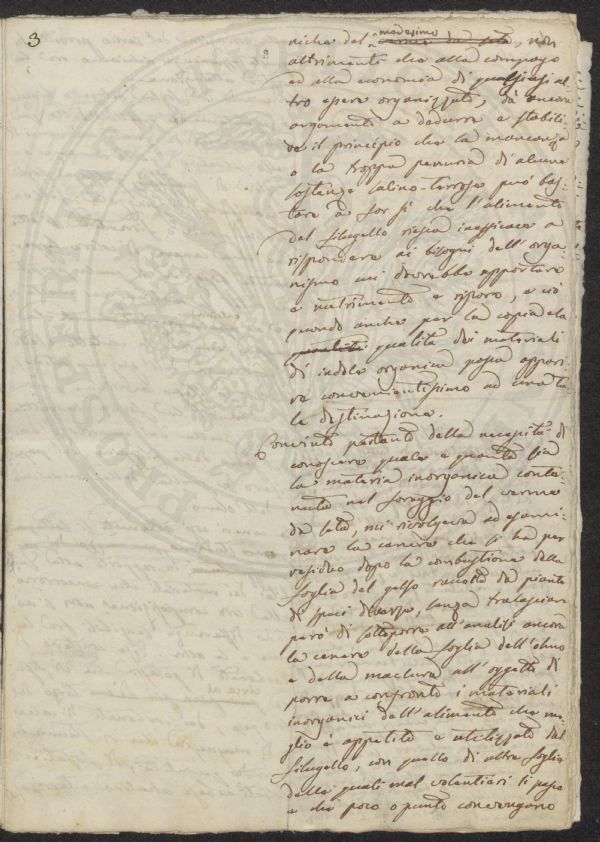 3
niche del medesimo verme da seta, non
altrimenti che alla compage
ed alla economia di qualsiasi al-
tro essere organizzato, dà ancora
argomento a dedurre e stabili-
re il principio che la mancanza
o la troppa penuria di alcune
sostanze salino-terrose può bas-
tare a far sì che l'alimento
del filugello riesca inefficace a
rispondere ai bisogni dell'orga-
nismo cui dovrebbe apportare
e nutrimento e ristoro, e ciò
quando anche per la copia e la
qualità qualità dei materiali
di indole organica possa appari-
re convenientissimo ad una ta-
le destinazione.
Convinto pertanto della necessità di
conoscere quale e quanta sia
la materia inorganica conte-
nuta nel foraggio del verme
da seta, mi rivolgeva ad esami-
nare la cenere che si ha per
residuo dopo la combustione della
foglia del gelso raccolta da piante
di specie diverse, senza tralasciare
però di sottoporre all'analisi ancora
la cenere della foglia dell'olmo
e della maclura all'oggetto di
porre a confronto i materiali
inorganici dell'alimento che me-
glio è appetito e utilizzato dal
filugello, con quello di altre foglie
delle quali mal volentieri si pasce
e che poco o punto convengono